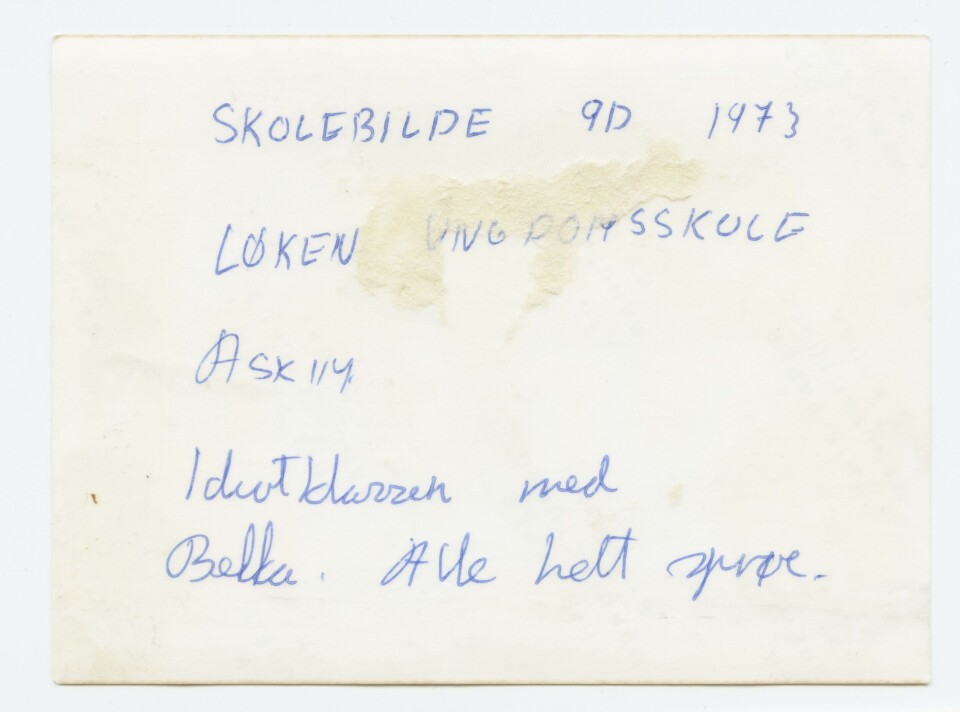 SKOLEBILDE 9D 1973
LØKEN UNGDOMSSKOLE
Idiotklassen med
Bekka. Alle helt sprøe.